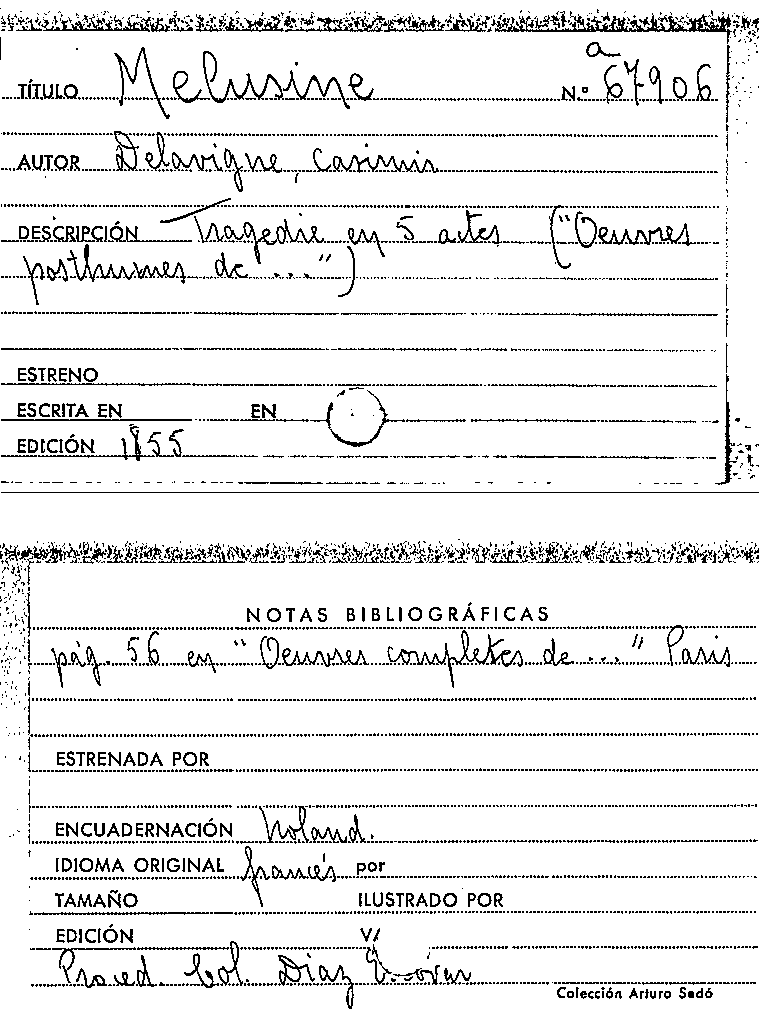 TÍTULO Melusine N.º a 67906
AUTOR Delavigne, Casimir
DESCRIPCIÓN Tragedie en 5 actes ("Oeuvres
posthumes de ...")
ESTRENO
ESCRITA EN EN
EDICIÓN 1855
NOTAS BIBLIOGRÁFICAS
pág. 56 en "Oeuvres completes de ..." Paris
ESTRENADA POR
ENCUADERNACIÓN holand.
IDIOMA ORIGINAL francés por
TAMAÑO ILUSTRADO POR
EDICIÓN V/
Proced. Col. Diaz
Colección Arturo Sedó